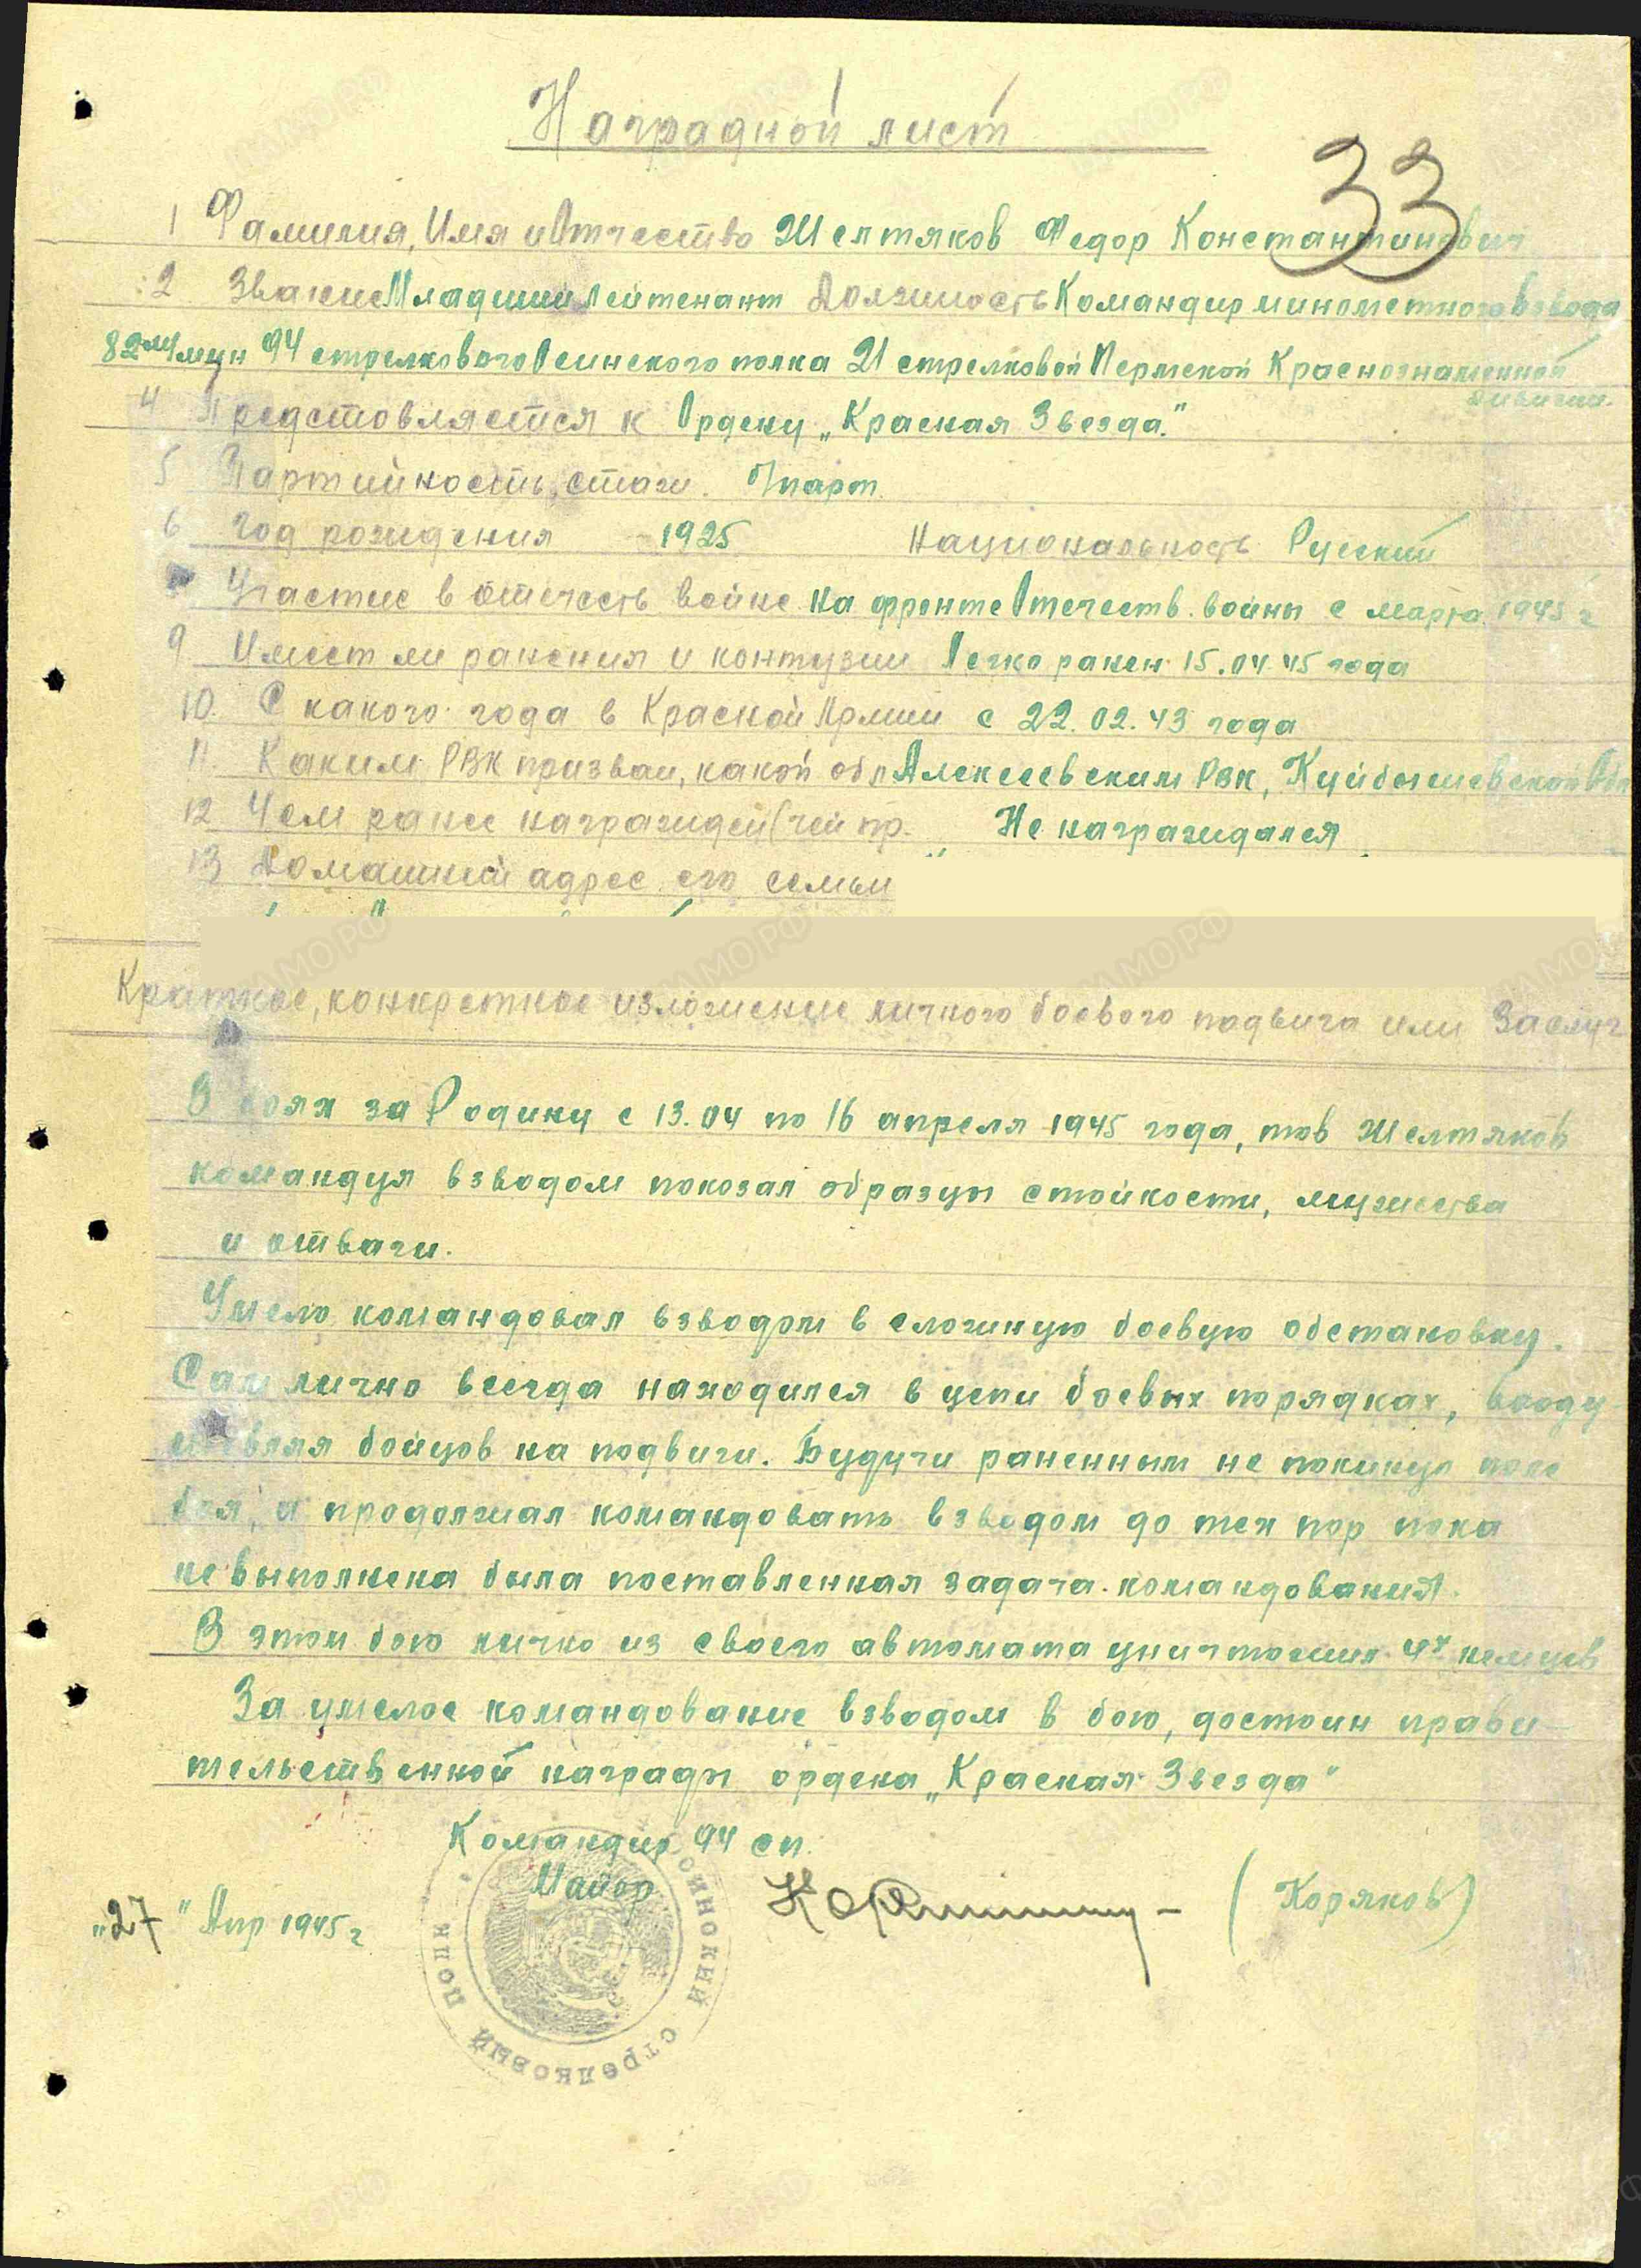 Наградной лист
33
1 Фамилия, Имя и Отчество Желтяков Федор Константинович
2 Звание Младший лейтенант Должность Командир минометного взвода
82 мм мин 94 стрелкового Осинского полка 21 стрелковой Пермской Краснознаменной
дивизии.
4 Представляется к Ордену „Красная Звезда."
5 Партийность, стаж. б/парт.
6 Год рождения 1925 Национальность Русский
Участие в отечеств войне на фронте Отечеств. войны с марта 1945 г
9 Имеет ли ранения и контузии Легко ранен 15.04.45 года
10. С какого года в Краской Армии с 22.02.43 года
11. Каким РВК призван, какой обл Алексеевским РВК, Куйбышевской Обл
12 Чем ранее награжден (чей пр. Не награждался
13 Домашний адрес его семьи
Краткое, конкретное изложение личного боевого подвига или заслуг
В боях за Родину с 13.04 по 16 апреля 1945 года, тов Желтяков
командуя взводом показал образцы стойкости, мужества
и отваги.
Умело командовал взводом в сложную боевую обстановку.
Сам лично всегда находился в цепи боевых порядках, вооду-
шевляя бойцов на подвиги. Будучи раненным не покинул поле
боя, а продолжал командовать взводом до тех пор пока
не выполнена была поставленная задача. командования.
В этом бою лично из своего автомата уничтожил 4х немцев
За умелое командование взводом в бою, достоин прави-
тельственной награды ордена „Красная Звезда"
Командир 94 сп.
Майор (Коряков)
„27" Апр 1945 г
Осинский стрелковый полк